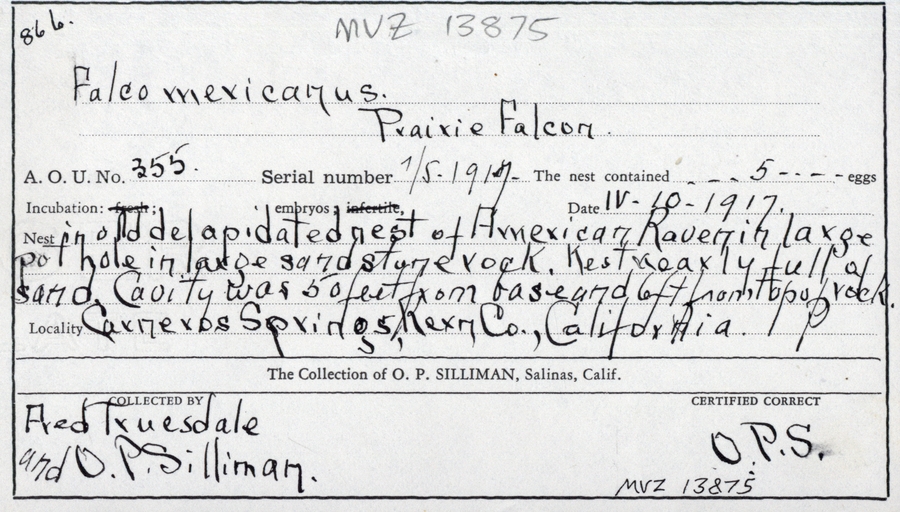 866.
MVZ 13875
Falco mexicanus.
Prairie Falcon.
A. O. U. No. 355. Serial number 1/5-1917- The nest contained - - - 5 - - - - eggs
Incubation: fresh; embryos; infertile, Date IV-10-1917.
Nest in old delapidated nest of American Raven in large
pot hole in large sandstone rock. Nest nearly full of
sand. Cavity was 50 feet from base and 6 ft from top of rock.
Locality Carneros Springs, Kern Co., California.
The Collection of O. P. SILLIMAN, Salinas, Calif.
COLLECTED BY CERTIFIED CORRECT
Fred Truesdale
and O.P. Silliman.
O.P.S.
MVZ 13875